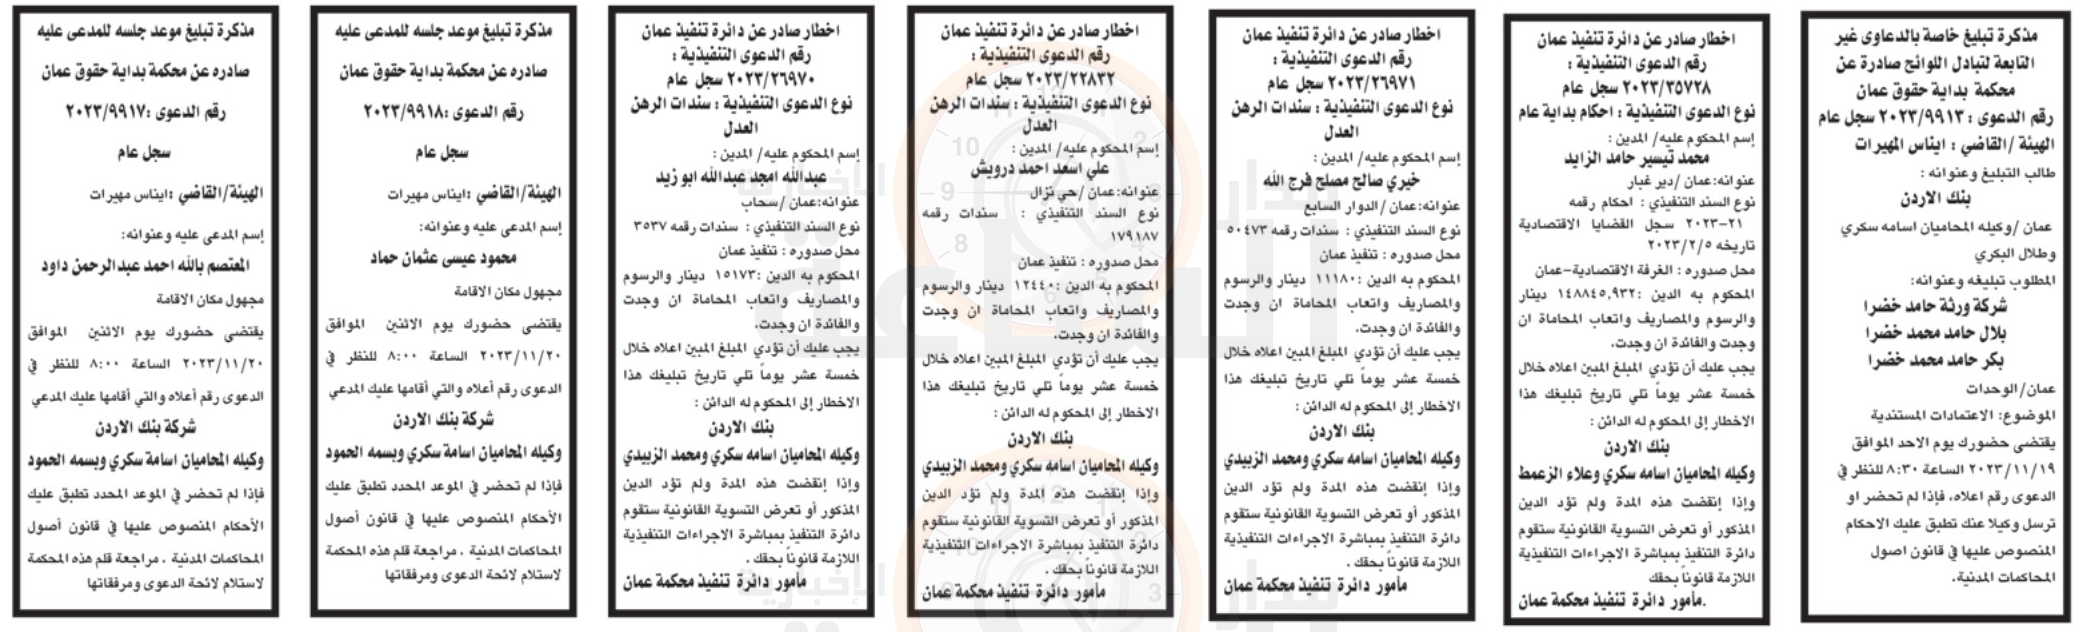 مذكرة تبليغ خاصة بالدعاوى غير
التابعة لتبادل اللوائح صادرة عن
محكمة بداية حقوق عمان
رقم الدعوى : ٢٠٢٣/٩٩١٣ سجل عام
الهيئة /القاضي : ايناس المهيرات
طالب التبليغ وعنوانه :
بنك الاردن
عمان /وكيله المحاميان اسامه سكري
وطلال البكري
المطلوب تبليغه وعنوانه:
شركة ورثة حامد خضرا
بلال حامد محمد خضرا
بكر حامد محمد خضرا
عمان/الوحدات
الموضوع: الاعتمادات المستندية
يقتضى حضورك يوم الاحد الموافق
٢٠٢٣/١١/١٩ الساعة ٨:٣٠ للنظر في
الدعوى رقم اعلاه، فإذا لم تحضر او
ترسل وكيلا عنك تطبق عليك الاحكام
المنصوص عليها في قانون اصول
المحاكمات المدنية.
اخطار صادر عن دائرة تنفيذ عمان
رقم الدعوى التنفيذية :
٢٠٢٣/٣٥٧٢٨ سجل عام
نوع الدعوى التنفيذية : احكام بداية عام
إسم المحكوم عليه/ المدين :
محمد تيسير حامد الزايد
عنوانه:عمان /دير غبار
نوع السند التنفيذي : احكام رقمه
٢١-٢٠٢٣ سجل القضايا الاقتصادية
تاريخه ٢٠٢٣/٢/٥
محل صدوره : الغرفة الاقتصادية-عمان
المحكوم به الدين :١٤٨٨٤٥,٩٣٢ دينار
والرسوم والمصاريف واتعاب المحاماة ان
وجدت والفائدة ان وجدت.
يجب عليك أن تؤدي المبلغ المبين اعلاه خلال
خمسة عشر يوماً تلي تاريخ تبليغك هذا
الاخطار إلى المحكوم له الدائن :
بنك الاردن
وكيله المحاميان اسامه سكري وعلاء الزعمط
وإذا إنقضت هذه المدة ولم تؤد الدين
المذكور أو تعرض التسوية القانونية ستقوم
دائرة التنفيذ بمباشرة الاجراءات التنفيذية
اللازمة قانوناً بحقك
مأمور دائرة تنفيذ محكمة عمان.
اخطار صادر عن دائرة تنفيذ عمان
رقم الدعوى التنفيذية :
٢٠٢٣/٢٦٩٧١ سجل عام
نوع الدعوى التنفيذية : سندات الرهن
العدل
إسم المحكوم عليه/ المدين :
خيري صالح مصلح فرج الله
عنوانه:عمان /الدوار السابع
نوع السند التنفيذي : سندات رقمه ٥٠٤٧٣
محل صدوره : تنفيذ عمان
المحكوم به الدين :١١١٨٠ دينار والرسوم
والمصاريف واتعاب المحاماة ان وجدت
والفائدة ان وجدت.
يجب عليك أن تؤدي المبلغ المبين اعلاه خلال
خمسة عشر يوماً تلي تاريخ تبليغك هذا
الاخطار إلى المحكوم له الدائن :
بنك الاردن
وكيله المحاميان اسامه سكري ومحمد الزبيدي
وإذا إنقضت هذه المدة ولم تؤد الدين
المذكور أو تعرض التسوية القانونية ستقوم
دائرة التنفيذ بمباشرة الاجراءات التنفيذية
اللازمة قانوناً بحقك .
مأمور دائرة تنفيذ محكمة عمان
اخطار صادر عن دائرة تنفيذ عمان
رقم الدعوى التنفيذية :
٢٠٢٣/٢٢٨٣٢ سجل عام
نوع الدعوى التنفيذية : سندات الرهن
العدل
إسم المحكوم عليه/ المدين :
علي اسعد احمد درويش
عنوانه:عمان /حي نزال
نوع السند التنفيذي : سندات رقمه
١٧٩١٨٧
محل صدوره : تنفيذ عمان
المحكوم به الدين :١٢٤٤٠ دينار والرسوم
والمصاريف واتعاب المحاماة ان وجدت
والفائدة ان وجدت.
يجب عليك أن تؤدي المبلغ المبين اعلاه خلال
خمسة عشر يوماً تلي تاريخ تبليغك هذا
الاخطار إلى المحكوم له الدائن :
بنك الاردن
وكيله المحاميان اسامه سكري ومحمد الزبيدي
وإذا إنقضت هذه المدة ولم تؤد الدين
المذكور أو تعرض التسوية القانونية ستقوم
دائرة التنفيذ بمباشرة الاجراءات التنفيذية
اللازمة قانوناً بحقك .
مأمور دائرة تنفيذ محكمة عمان
اخطار صادر عن دائرة تنفيذ عمان
رقم الدعوى التنفيذية :
٢٠٢٣/٢٦٩٧٠ سجل عام
نوع الدعوى التنفيذية : سندات الرهن
العدل
إسم المحكوم عليه/ المدين :
عبدالله امجد عبدالله ابو زيد
عنوانه:عمان /سحاب
نوع السند التنفيذي : سندات رقمه ٣٥٣٧
محل صدوره : تنفيذ عمان
المحكوم به الدين :١٥١٧٣ دينار والرسوم
والمصاريف واتعاب المحاماة ان وجدت
والفائدة ان وجدت.
يجب عليك أن تؤدي المبلغ المبين اعلاه خلال
خمسة عشر يوماً تلي تاريخ تبليغك هذا
الاخطار إلى المحكوم له الدائن :
بنك الاردن
وكيله المحاميان اسامه سكري ومحمد الزبيدي
وإذا إنقضت هذه المدة ولم تؤد الدين
المذكور أو تعرض التسوية القانونية ستقوم
دائرة التنفيذ بمباشرة الاجراءات التنفيذية
اللازمة قانوناً بحقك .
مأمور دائرة تنفيذ محكمة عمان
مذكرة تبليغ موعد جلسه للمدعى عليه
صادره عن محكمة بداية حقوق عمان
رقم الدعوى :٢٠٢٣/٩٩١٨
سجل عام
الهيئة/القاضي :ايناس مهيرات
إسم المدعى عليه وعنوانه:
محمود عيسى عثمان حماد
مجهول مكان الاقامة
يقتضى حضورك يوم الاثنين الموافق
٢٠٢٣/١١/٢٠ الساعة ٨:٠٠ للنظر في
الدعوى رقم أعلاه والتي أقامها عليك المدعي
شركة بنك الاردن
وكيله المحاميان اسامة سكري وبسمه الحمود
فإذا لم تحضر في الموعد المحدد تطبق عليك
الأحكام المنصوص عليها في قانون أصول
المحاكمات المدنية . مراجعة قلم هذه المحكمة
لاستلام لائحة الدعوى ومرفقاتها
مذكرة تبليغ موعد جلسه للمدعى عليه
صادره عن محكمة بداية حقوق عمان
رقم الدعوى :٢٠٢٣/٩٩١٧
سجل عام
الهيئة/القاضي :ايناس مهيرات
إسم المدعى عليه وعنوانه:
المعتصم بالله احمد عبدالرحمن داود
مجهول مكان الاقامة
يقتضى حضورك يوم الاثنين الموافق
٢٠٢٣/١١/٢٠ الساعة ٨:٠٠ للنظر في
الدعوى رقم أعلاه والتي أقامها عليك المدعي
شركة بنك الاردن
وكيله المحاميان اسامة سكري وبسمه الحمود
فإذا لم تحضر في الموعد المحدد تطبق عليك
الأحكام المنصوص عليها في قانون أصول
المحاكمات المدنية . مراجعة قلم هذه المحكمة
لاستلام لائحة الدعوى ومرفقاتها